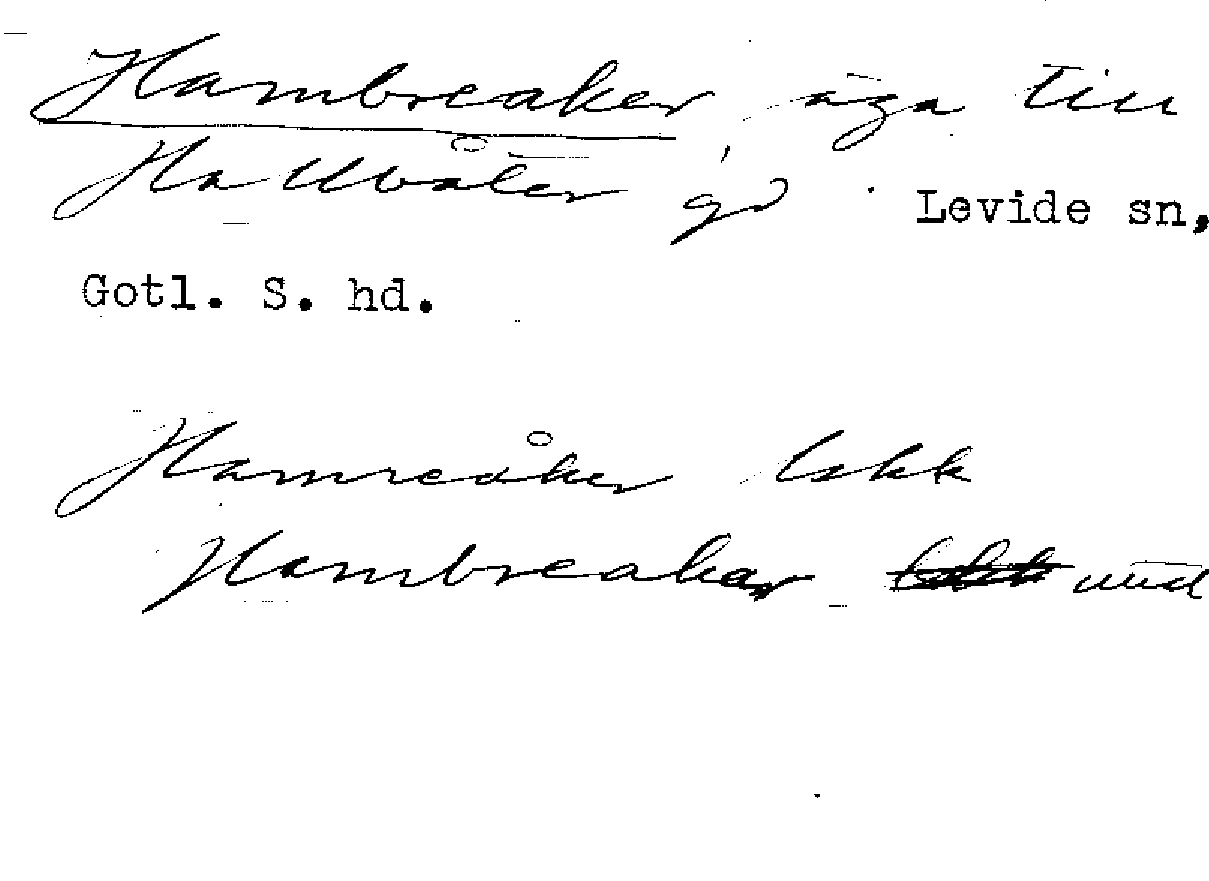 Hambreaker, äga till
Hallvåter gd. Levide sn,
Gotl. S. hd.
Hamreåker lskk
Hambreaker